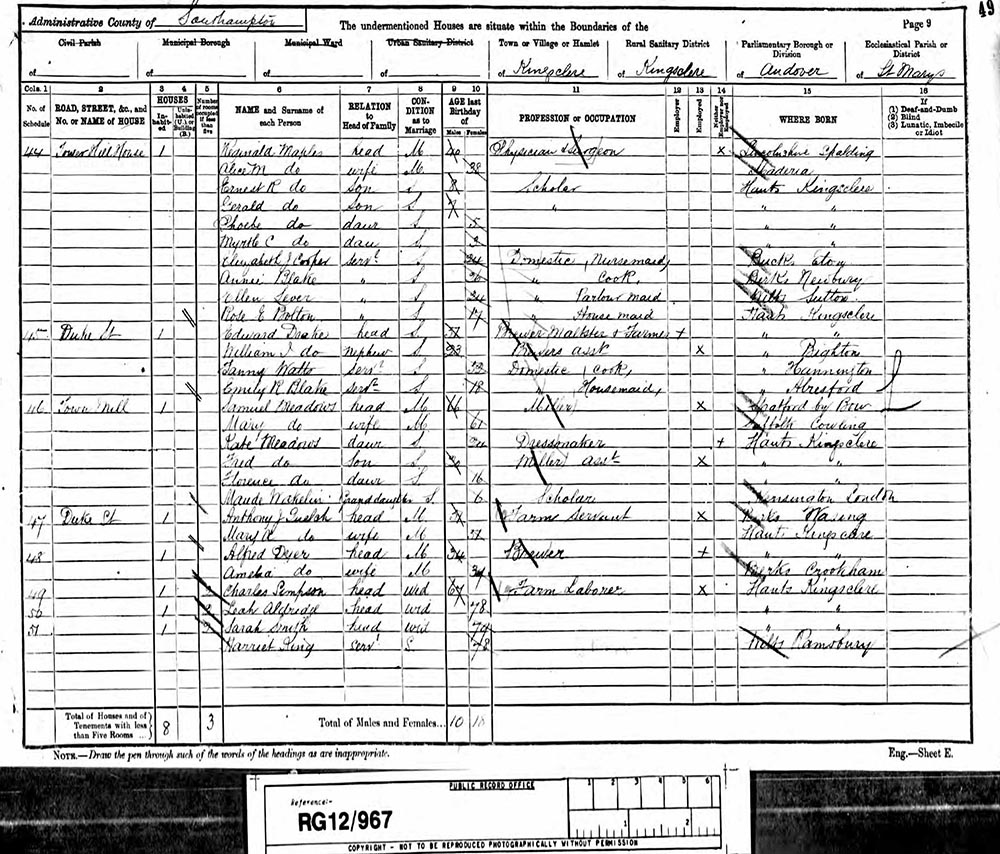 49
Administrative County of Southampton
The undermentioned Houses are situate within the Boundaries of the
Page 9
Civil Parish
Municipal Borough
Municipal Ward
Urban Sanitary District
Town or Village or Hamlet
Rural Sanitary District
Parliamentary Borough or Division
Ecclesiastical Parish or District
of
of
of
of
of Kingsclere
of Kingsclere
of Andover
of St Marys
Cols. 1 2 3 4 5 6 7 8 9 10 11 12 13 14 15 16
No. of Schedule
ROAD, STREET, &c., and No. or NAME of HOUSE
HOUSES
Inhabited
Uninhabited (U.) or Building (B.)
Number of rooms occupied if less than five
NAME and Surname of each Person
RELATION to Head of Family
CONDITION as to Marriage
AGE last Birthday of
Males Females
PROFESSION or OCCUPATION
Employer
Employed
Neither Employer nor Employed
WHERE BORN
If
(1) Deaf-and-Dumb
(2) Blind
(3) Lunatic, Imbecile or Idiot
44 House 1 Reginald Maples head M 40 Physician & Surgeon x Lincolnshire Spalding
Alice M do wife M 38 Maderia
Ernest R do son S 8 Scholar Hants Kingsclere
Gerald do son S 7 " " "
Phoebe do daur S 5 " "
Myrtle C do dau S " "
Elizabeth J Cooper servt S 24 Domestic (Nursemaid) Buck Eton
Annie Blake " S 26 " Cook, Berks Newbury
Ellen " S 24 " Parlour maid Wilts Sutton
Rose E Bolton " S 17 " House maid Hants Kingsclere
45 Duke St 1 Edward Drake head S Brewer Maltster & Farmer + " "
William J do Nephew S 23 Brewers asst x " Brighton
Fanny Watts servt S Domestic (Cook, " Hannington
Emily R Blake servt S 18 " Housemaid, " Alresford
46 Town Mill 1 Samuel Meadows head M Miller x Stratford by Bow
Mary do wife M 61 Suffolk Cowling
Kate Meadows daur S Dressmaker + Hants Kingsclere
Fred do Son S Miller asst x " "
Florence do daur S 16 " "
Maude Wakelin Granddaughter S 6 Scholar Kensington London
47 Duke St 1 Anthony J head M Farm Servant x Berks Wasing
Mary A do wife M Hants Kingsclere
48 1 Alfred Dyer head M 34 Brewer + " "
Amelia do wife M Berks Crookham
49 1 Charles Simpson head Wid 67 Farm Laborer x Hants Kingsclere
50 1 Leah Aldridge head wid 78 " "
51 1 Sarah Smith head wid " "
Harriet King serv S 78 Wilts Ramsbury
Total of Houses and of Tenements with less than Five Rooms ... 8 3
Total of Males and Females... 10 18
NOTE.—Draw the pen through such of the words of the headings as are inappropriate.
Eng.—Sheet E.
PUBLIC RECORD OFFICE
Reference:-
RG12/967
1 2 3 4 5 6
1 2
COPYRIGHT - NOT TO BE REPRODUCED PHOTOGRAPHICALLY WITHOUT PERMISSION